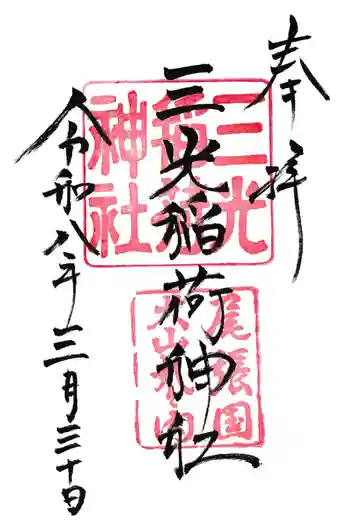 奉拝
三光稲荷神社
令和八年三月三十日
三光稲荷神社
尾張国犬山丸の内